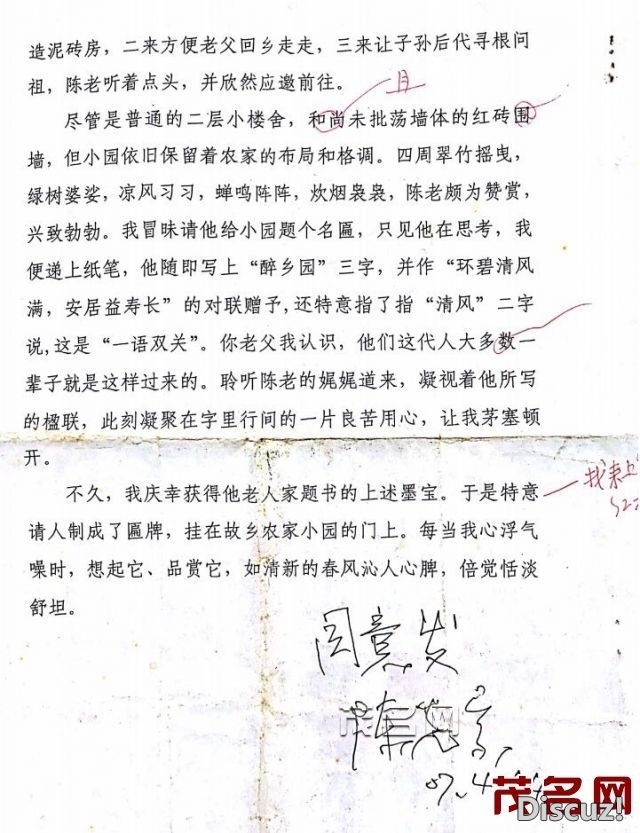 造泥砖房，二来方便老父回乡走走，三来让子孙后代寻根问
祖，陈老听着点头，并欣然应邀前往。
且
尽管是普通的二层小楼舍，和尚未批荡墙体的红砖围
墙，但小园依旧保留着农家的布局和格调。四周翠竹摇曳，
绿树婆娑，凉风习习，蝉鸣阵阵，炊烟袅袅，陈老颇为赞赏，
兴致勃勃。我冒昧请他给小园题个名匾，只见他在思考，我
便递上纸笔，他随即写上“醉乡园”三字，并作“环碧清风
满，安居益寿长”的对联赠予,还特意指了指“清风”二字
说,这是“一语双关”。你老父我认识，他们这代人大多数一
辈子就是这样过来的。聆听陈老的娓娓道来，凝视着他所写
的楹联，此刻凝聚在字里行间的一片良苦用心，让我茅塞顿
开。
不久，我庆幸获得他老人家题书的上述墨宝。于是特意
请人制成了匾牌，挂在故乡农家小园的门上。每当我心浮气
噪时，想起它、品赏它，如清新的春风沁人心脾，倍觉恬淡
舒坦。
同意发
陈
07.4
茂名网
茂名网
Discuz!